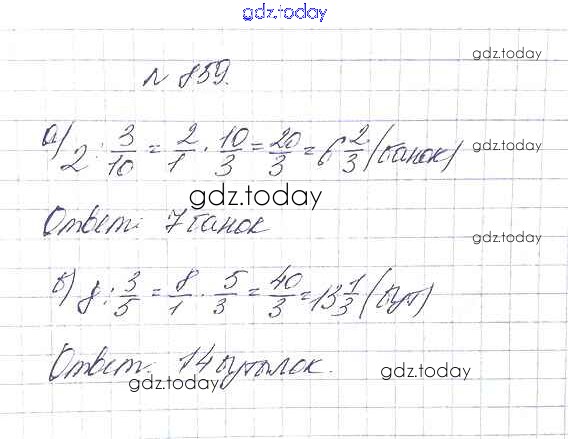 gdz.today
gdz.today
№ 859.
а) 2 : 3/10 = 2/1 · 10/3 = 20/3 = 6 2/3 (банок)
gdz.today
gdz.today
Ответ: 7 банок
gdz.today
б) 8 : 3/5 = 8/1 · 5/3 = 40/3 = 13 1/3 (бут)
Ответ: 14 бутылок.
gdz.today
gdz.today